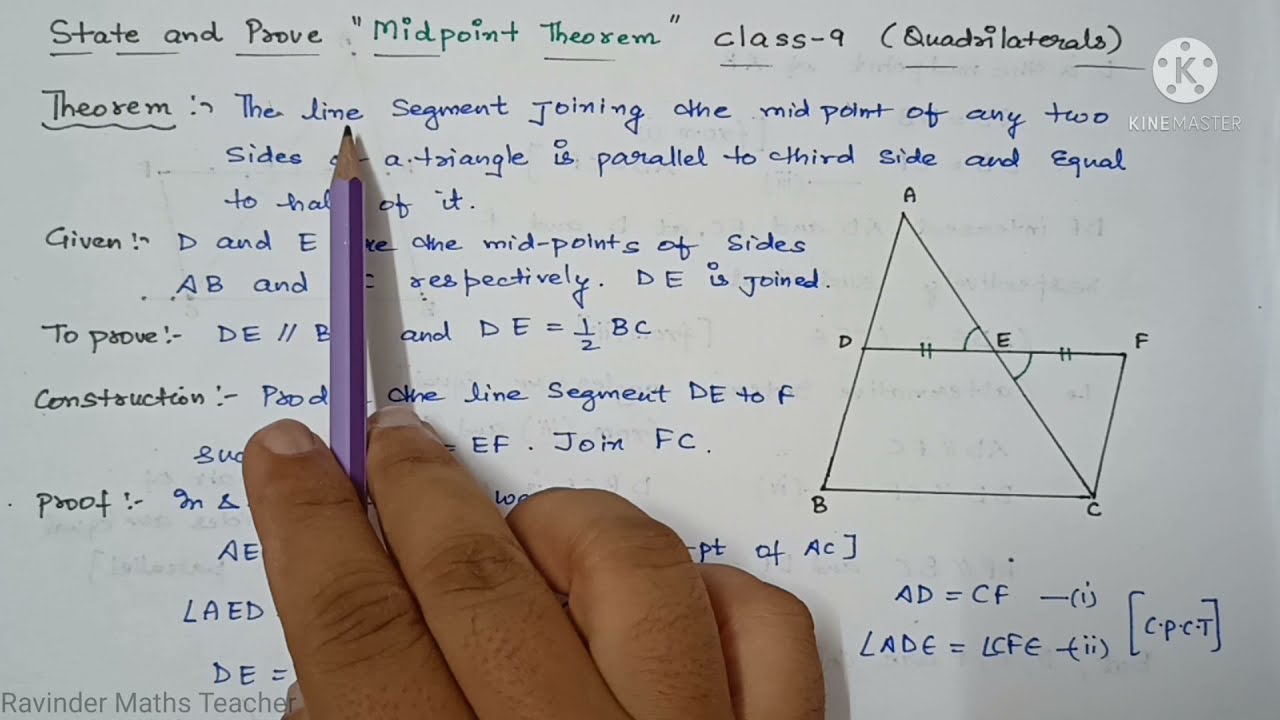 State and Prove "Midpoint Theorem" class-9 (Quadrilaterals)
Theorem :- The line segment joining the mid point of any two
sides a triangle is parallel to third side and equal
to of it.
Given :- D and E the mid-points of sides
AB and respectively. DE is joined.
To prove :- DE // and DE = 1/2 BC
Construction :- the line segment DE to F
= EF. Join FC.
Proof :- In
AE -pt of AC]
∠AED
DE =
A
D
E
F
B
C
AD = CF —(i)
∠ADE = ∠CFE —(ii) [C.P.C.T]
K
KINEMASTER
Ravinder Maths Teacher